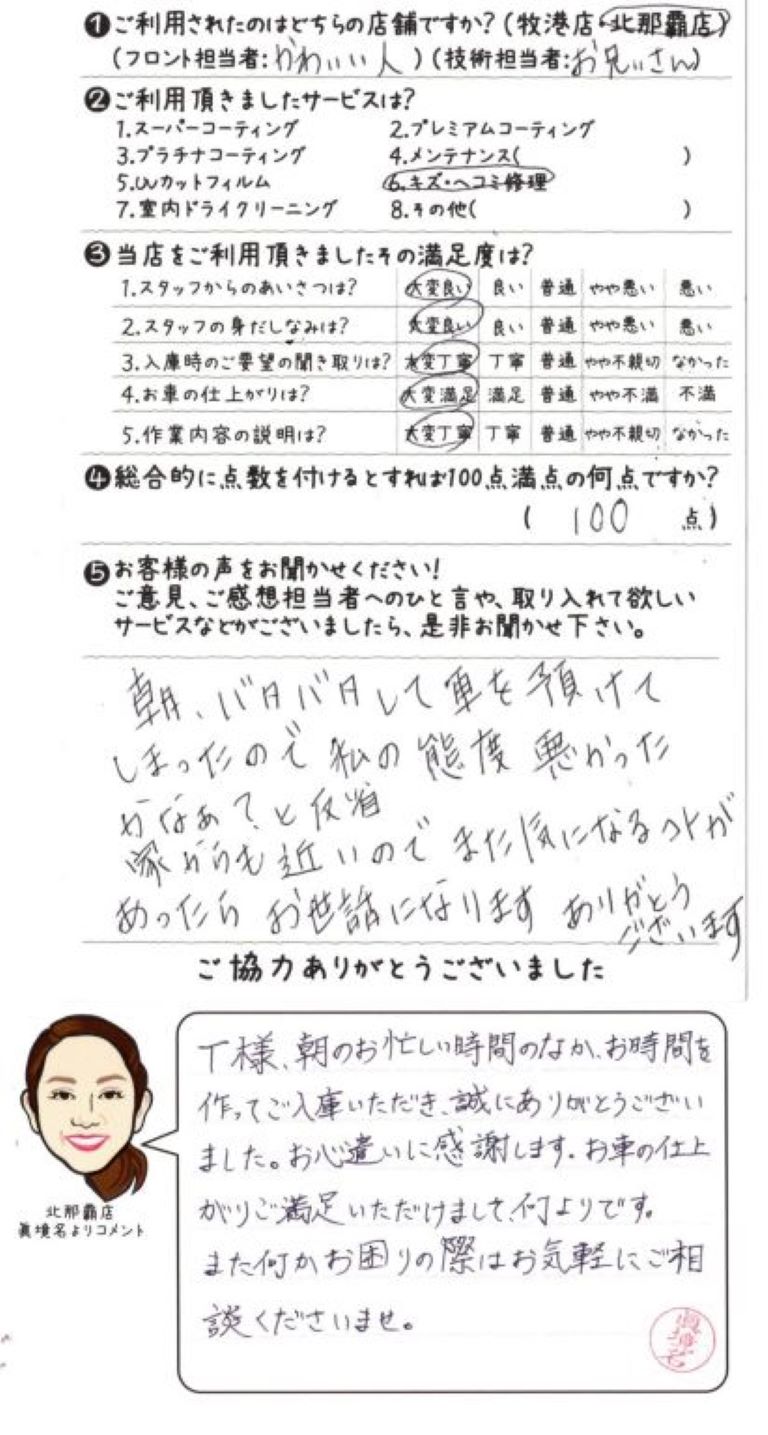 ❶ご利用されたのはどちらの店舗ですか?(牧港店・北那覇店)
(フロント担当者:かわいい人)(技術担当者:お兄いさん)
❷ご利用頂きましたサービスは?
1.スーパーコーティング 2.プレミアムコーティング
3.プラチナコーティング 4.メンテナンス( )
5.UVカットフィルム 6.キズ・ヘコミ修理
7.室内ドライクリーニング 8.その他( )
❸当店をご利用頂きましたその満足度は?
1.スタッフからのあいさつは? 大変良い 良い 普通 やや悪い 悪い
2.スタッフの身だしなみは? 大変良い 良い 普通 やや悪い 悪い
3.入庫時のご要望の聞き取りは? 大変丁寧 丁寧 普通 やや不親切 なかった
4.お車の仕上がりは? 大変満足 満足 普通 やや不満 不満
5.作業内容の説明は? 大変丁寧 丁寧 普通 やや不親切 なかった
❹総合的に点数を付けるとすれば100点満点の何点ですか?
( 100 点)
❺お客様の声をお聞かせください!
ご意見、ご感想担当者へのひと言や、取り入れて欲しい
サービスなどがございましたら、是非お聞かせ下さい。
朝、バタバタして車を預けて
しまったので私の態度悪かった
かなぁ?と反省
家からも近いのでまた気になるコトが
あったらお世話になります ありがとう
ございます
ご協力ありがとうございました
T様、朝のお忙しい時間のなか、お時間を
作ってご入庫いただき、誠にありがとうござい
ました。お心遣いに感謝します。お車の仕上
がりご満足いただけまして、何よりです。
また何かお困りの際はお気軽にご相
談くださいませ。
北那覇店
眞境名よりコメント
眞境名